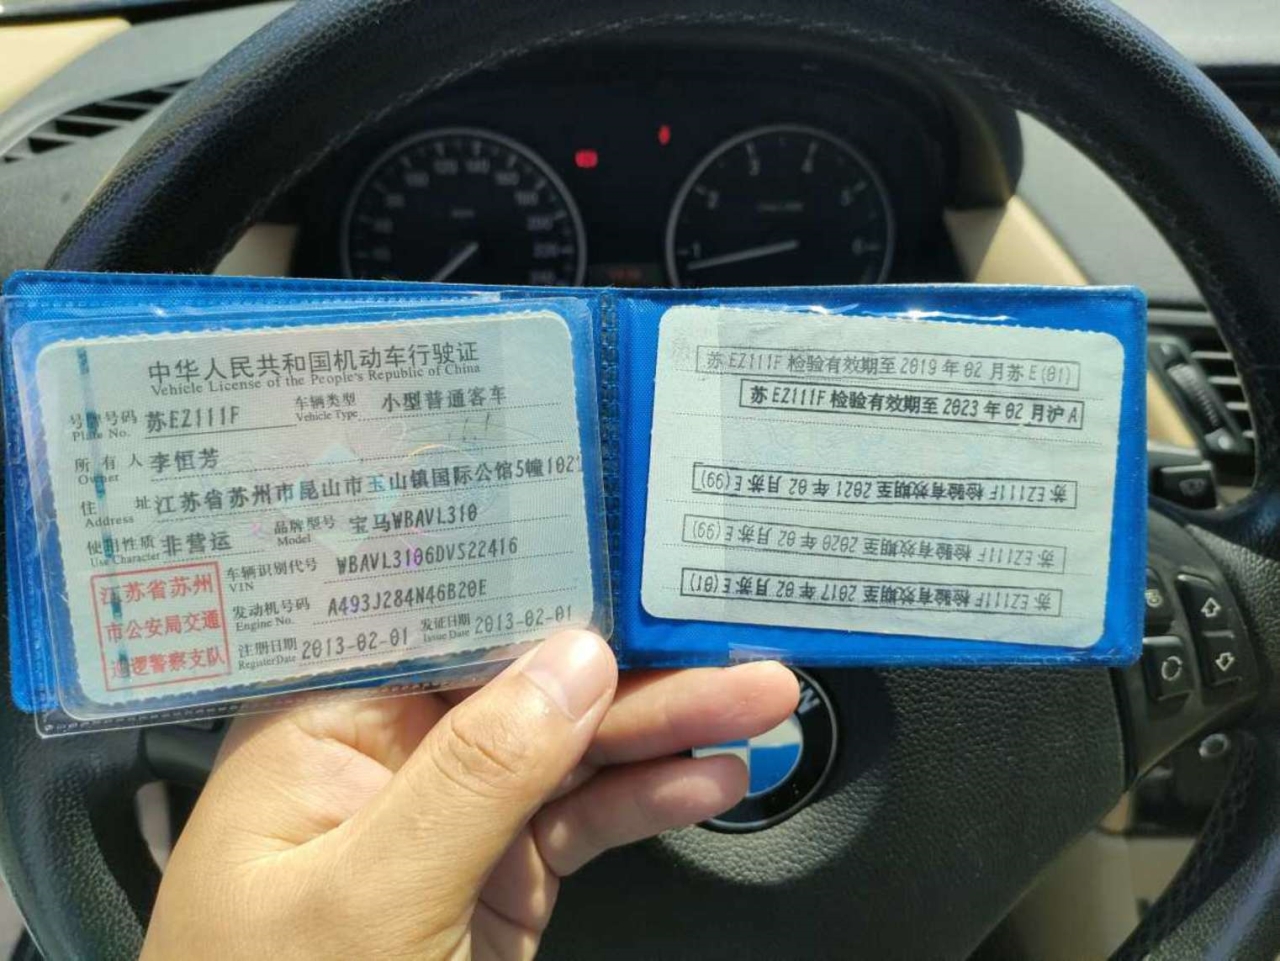 中华人民共和国机动车行驶证
Vehicle License of the People's Republic of China
号牌号码 苏EZ111F 车辆类型 小型普通客车
Plate No. Vehicle Type
所有人 李恒芳
Owner
住址 江苏省苏州市昆山市玉山镇国际公馆5幢102
Address
使用性质 非营运 品牌型号 宝马WBAVL310
Use Character Model
车辆识别代号 WBAVL3106DVS22416
VIN
发动机号码 A493J284N46B20E
Engine No.
注册日期 2013-02-01 发证日期 2013-02-01
Register Date Issue Date
江苏省苏州
市公安局交通
巡逻警察支队
苏EZ111F 检验有效期至 2019年02月苏E(01)
苏EZ111F 检验有效期至 2023年02月沪A
苏EZ111F 检验有效期至 2021年02月苏E(99)
苏EZ111F 检验有效期至 2020年02月苏E(99)
苏EZ111F 检验有效期至 2017年02月苏E(01)